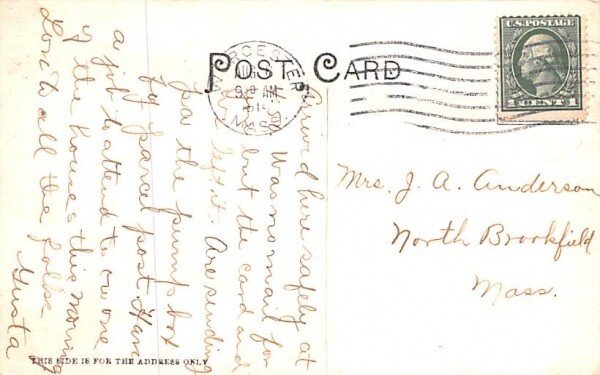 POST CARD
WORCESTER
AUG
9 30 AM
191
MASS.
U.S. POSTAGE
1 CENTS 1
Arrived here safely at
Was no mail for
but the card and
left it. Are sending
Pa the pump box
by parcel post. Have
a job to attend to on one
of the houses this morning
Love to all the folks.
Gusta
Mrs. J. A. Anderson
North Brookfield
Mass.
THIS SIDE IS FOR THE ADDRESS ONLY